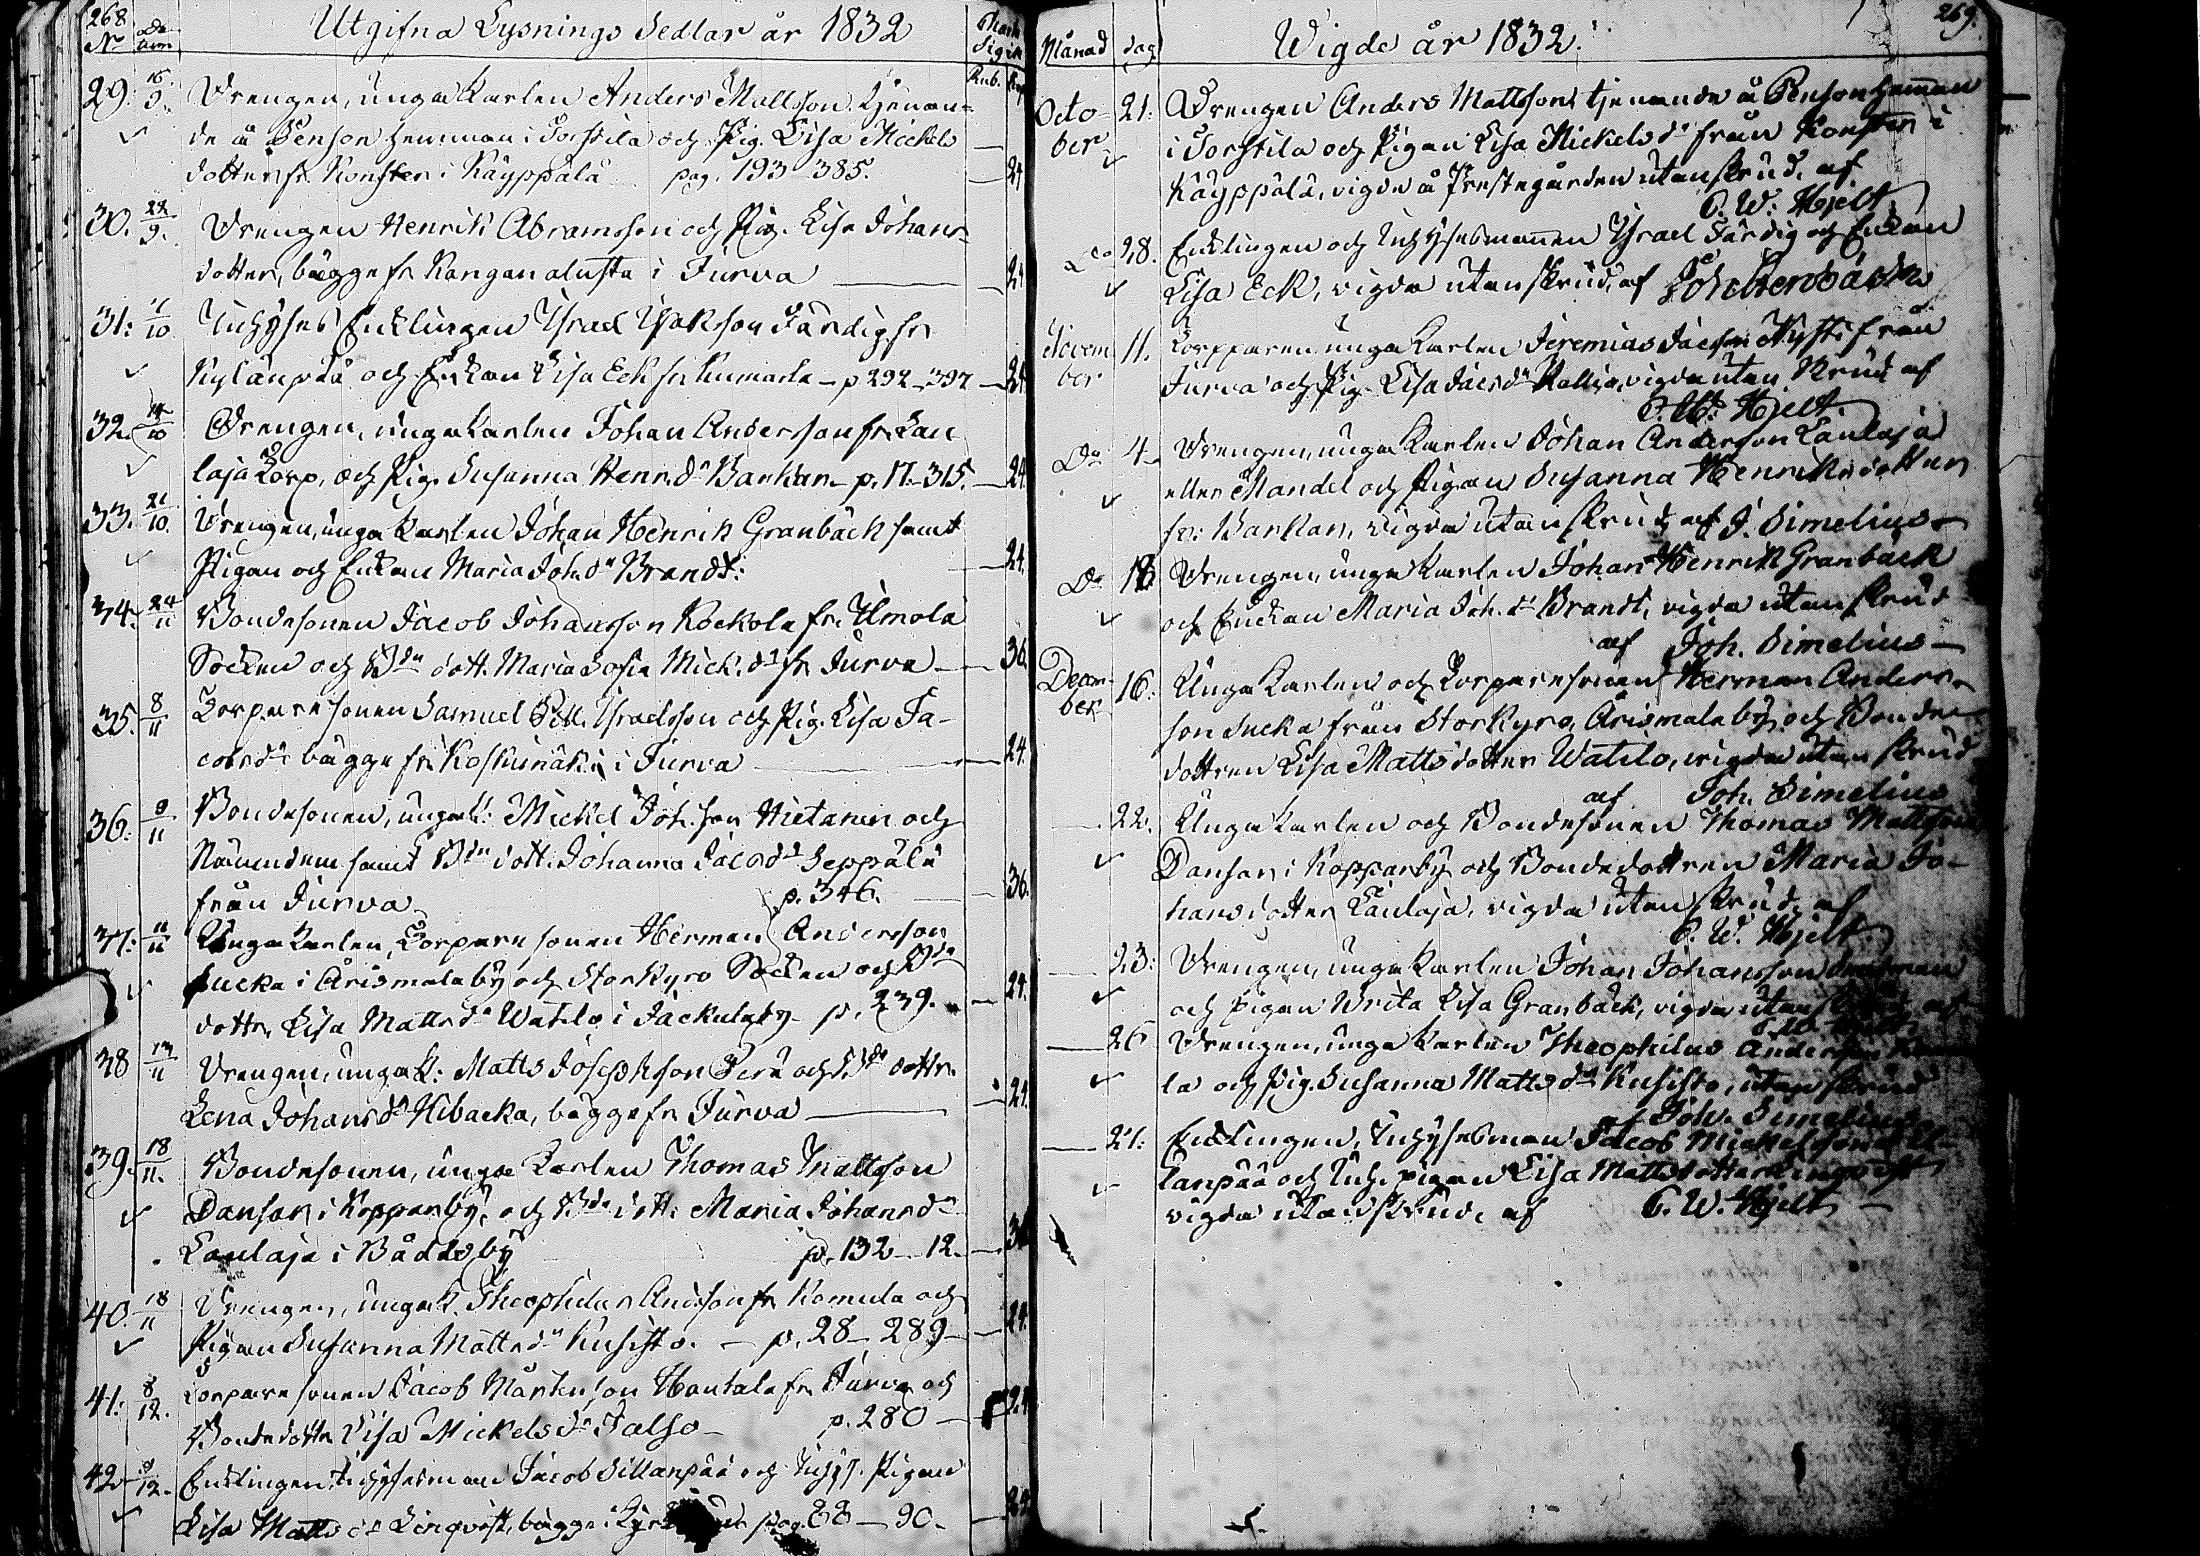 268
No Da-tum Utgifna Lysnings Sedlar år 1832
Rub. Kop.
29. 16/9. Drengen, unga Karlen Anders Mattsson tjenan-
de å Penson hemman i Torstila och Pig. Lisa Mickels
dotter fr. Konsten i Käyppälä pag. 193 385. 24
30. 22/9. Drengen Henrik Abramsson och Pig. Lisa Johans-
dotter, bägge fr. Kangan alusta i Jurva 24
31: 1/10 Inhyses Enklingen Israel Isakson Färdig fr.
Kylänpää och Enkan Lisa Eck fr. Kumarla - p 292 - 24.
32. 14/10 Drengen, unga Karlen Johan Andersson fr. Lau
laja Torp, och Pig. Susanna Henr. dr Barkar - p. 17 - 315. 24.
33. 21/10. Drengen, unga Karlen Johan Henrik Granbäck samt
Pigan och Enkan Maria Joh. dr Brandt: 24.
34. 24/11 Bondesonen Jacob Johansson Kockola fr. Ilmola
Socken och Bde dott. Maria Sofia Mick. dr fr. Jurva 36.
35. 8/11 Torparesonen Samuel Israelsson och Pig. Lisa Ja-
cobsdr bägge fr. Koskimäki i Jurva 24.
36: 9/11 Bondesonen, unga K: Mickel Joh. son Hietanen och
samt Bde dott: Johanna Jacobsdr Seppälä
från Jurva p. 346. 36.
37: 11/11 Unga Karlen, Torparesonen Herman Andersson
Sucka i Orismala by och Storkyro Socken och Bde
dottr. Lisa Mattsdr Watilo i Jackula by p. 239. 24.
38 13/11 Drengen, unga K: Matts Josephson Perä och Bde dottr.
Lena Johansdr Hibacka, bägge fr. Jurva 24.
39. 18/11. Bondesonen, unga Karlen Thomas Mattsson
Dansar i Kopparby, och Bde dott: Maria Johansdr
Laulaja i Båddsby p. 132 - 12. 36
40. 18/11 Drengen, unga K. Theophilus Andsson fr. Komula och
Pigan Susanna Mattsdr Kusisto. - p. 28 - 289 - 24.
41: 8/12. Torparesonen Jacob Mårtenson Hautala fr. Jurva och
Bondedottr. Lisa Mickelsdr Jalso - p. 280 - 24
42 9/12. Enklingen, Inhysesman Jacob Sillanpää och Inhys. Pigan
Lisa Mattsdr Linqvist, bägge i pag. 88 - 90. 24
269.
Månad dag Wigde år 1832.
Octo-ber 21: Drengen Anders Mattsson tjenande å Penson hemman
i Torstila och Pigan Lisa Mickelsdr från Konsten i
Käyppälä, vigde å Prestegården utan skrud, af
C. W. Hjelt
Do 28. Enklingen och Inhysesmannen Israel Färdig och Enkan
Lisa Eck, vigde utan skrud, af Joh. Stenbäck
Novem-ber 11. Torparen unga Karlen Jeremias Jacobsson från
Jurva och Pig. Lisa Jacobsdr Kallio, vigde utan skrud af
C. W. Hjelt
Do 4. Drengen, unga Karlen Johan Andersson Laulaja
eller Mandel och Pigan Susanna Henriksdotter
fr. Barklar, vigde utan skrud, af J. Simelius
Do 18 Drengen, unga Karlen Johan Henrik Granbäck
och Enkan Maria Joh. dr Brandt, vigde utan skrud
af Joh. Simelius
Decem-ber 16: Unga Karlen och Torparesonen Herman Anders-
son Sucka från Storkyro, Orismala by och Bonde-
dottren Lisa Mattsdotter Watilo, vigde utan skrud
af Joh. Simelius
22. Unga Karlen och Bondesonen Thomas Mattsson
Dansar i Kopparby och Bondedottren Maria Jo-
hansdotter Laulaja, vigde utan skrud, af
C. W. Hjelt
23: Drengen, unga Karlen Johan Johansson
och pigan Brita Lisa Granbäck, vigde utan skrud af
C. W. Hjelt
26 Drengen, unga Karlen Theophilus Andersson Komu-
la och Pig. Susanna Mattsdr Kusisto, utan skrud
af Joh. Simelius
27: Enklingen, Inhysesman Jacob Mickelsson Sil-
lanpää och Inh. pigan Lisa Mattsdotter Lingqvist
vigde utan skrud, af C. W. Hjelt